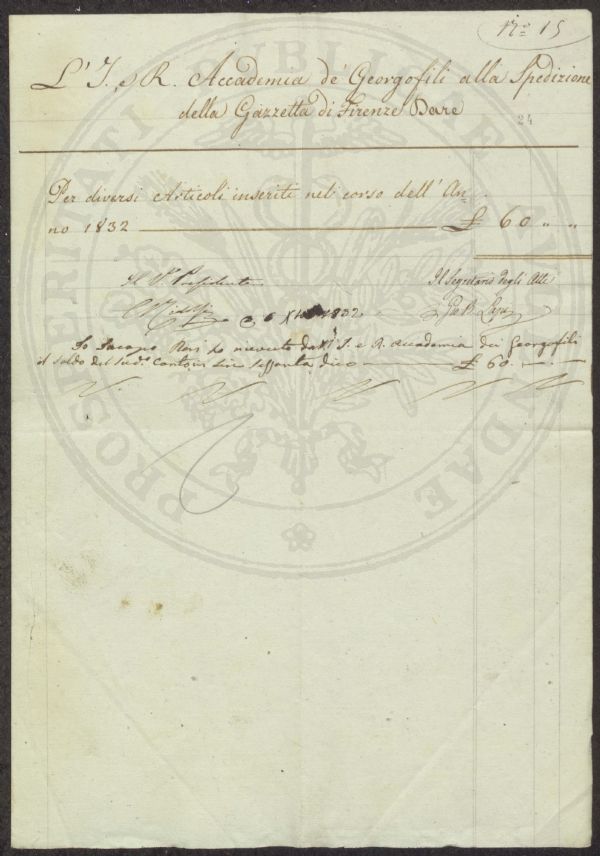 N.º 15
L' I. e R. Accademia de' Georgofili alla Spedizione
della Gazzetta di Firenze Dare
24
Per diversi Articoli inseriti nel corso dell' An=
no 1832 £ 60 " "
Il V. Presidente Il Segretario degli Atti
C Ridolfi
1832
Io Jacopo ho ricevuto dall' I. e R. Accademia dei Georgofili
il saldo del sud.º Conto in Lire sessanta dico £ 60 . — . —
PROSPERITATI PUBLICAE AUGENDAE